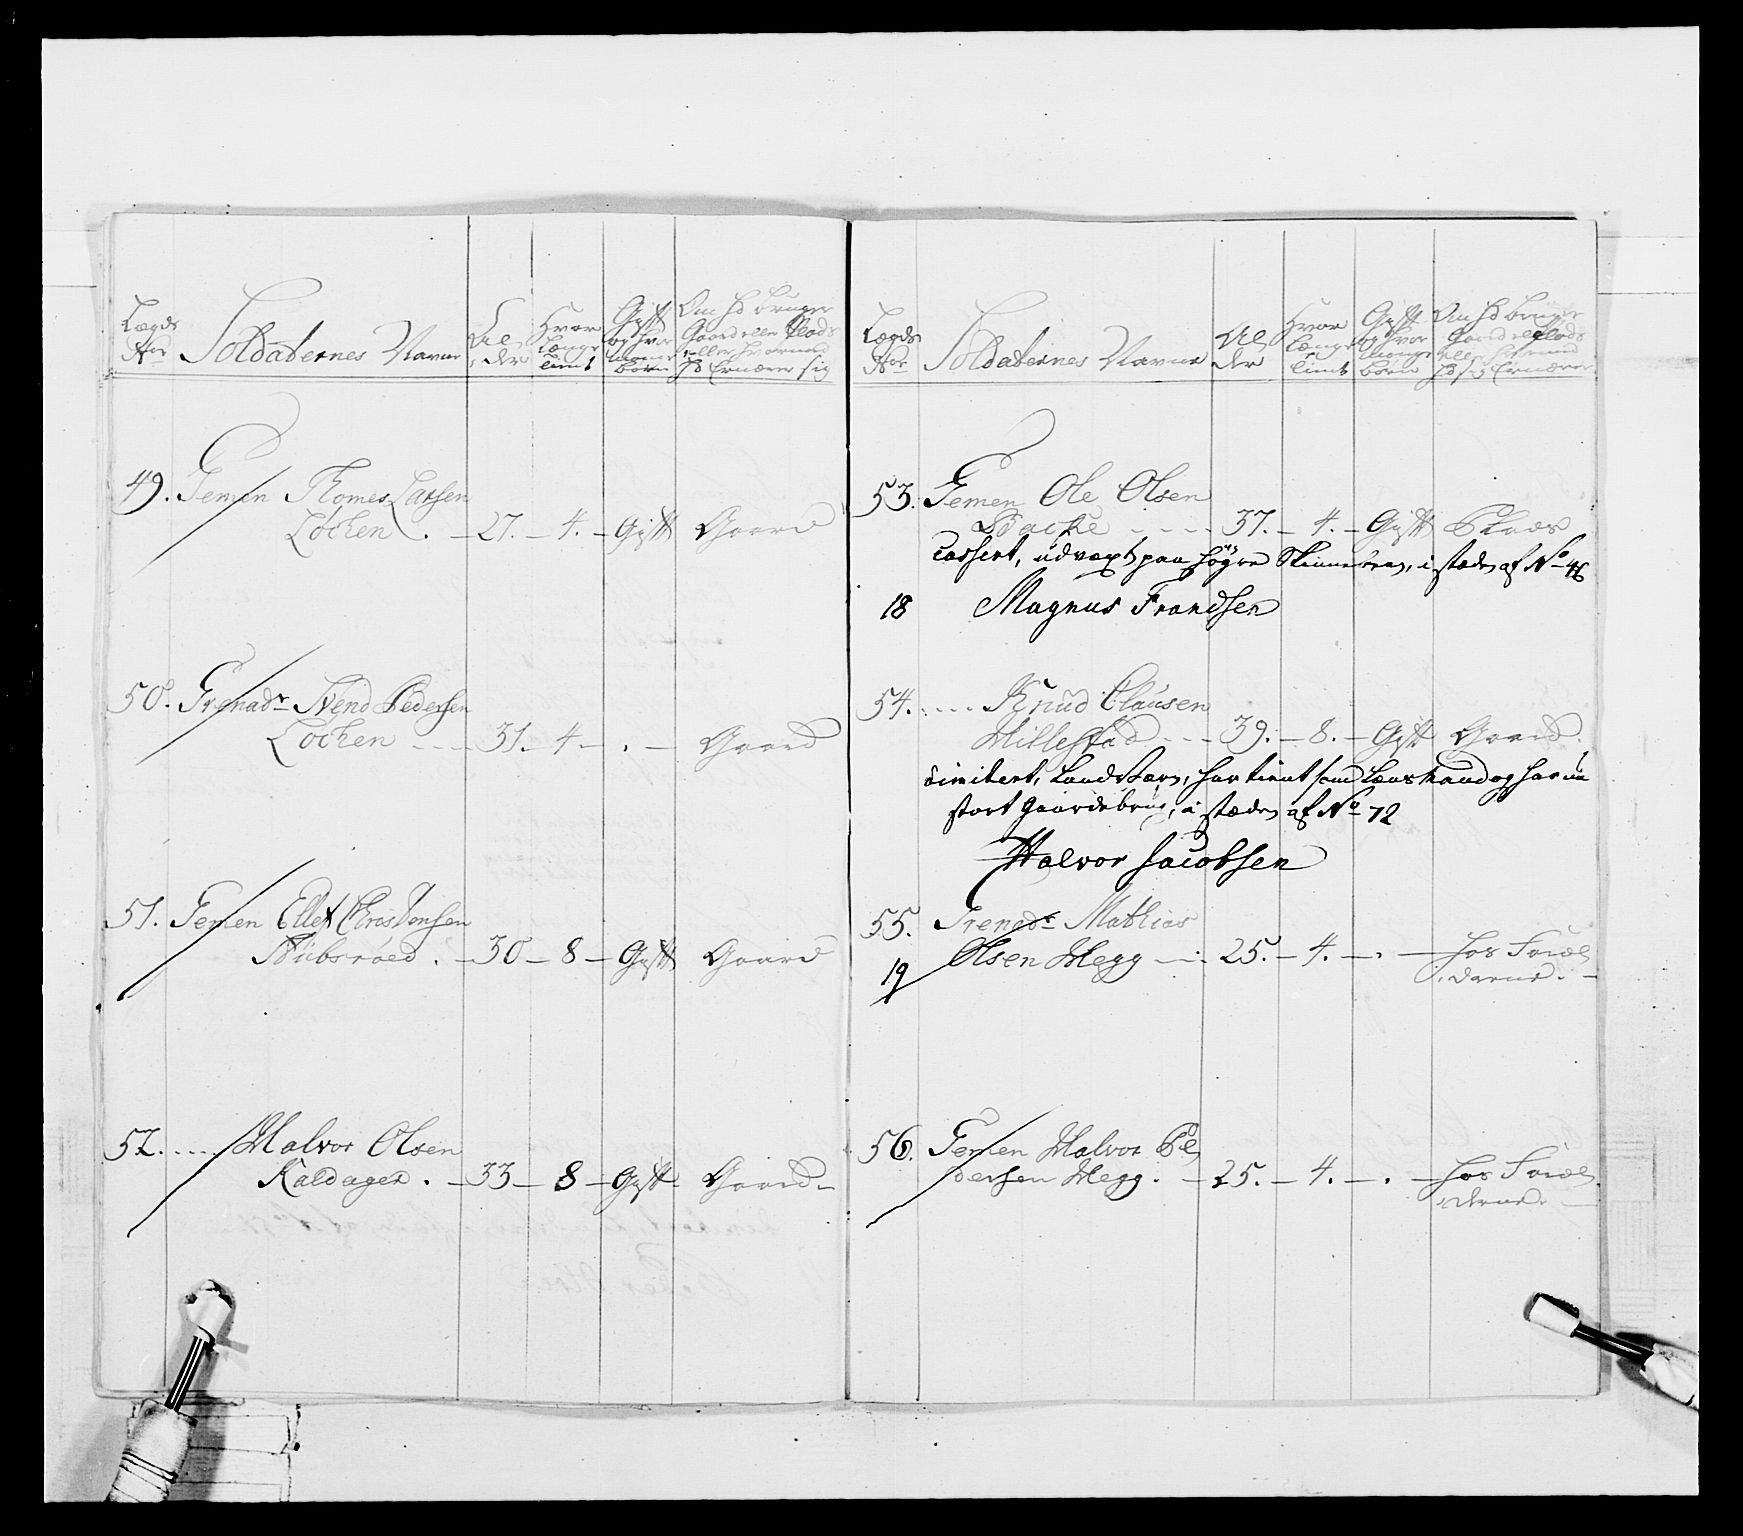 Lægds
No
Soldaternes Navne
Al
der
Hvor
længe
tient
Gift
og hvor
mange
børn
Om hd bruger
Gaard eller Plads
eller hvormed
hd Ernærer sig
49. Gemen Thomes Larsen
Löchen . – 27. – 4. – Gift Gaard
50. Grenadr Svend Pedersen
Löchen – – 31. – 4 – . – Gaard
51. Gemen Ellef Christensen
. – 30 – 8 – Gift Gaard
52. .... Halvor Olsen
Kaldager . – 33 – 8 – Gift – Gaard –
Lægds
No
Soldaternes Navne
Al
der
Hvor
længe
tient
Gift
og hvor
mange
børn
Om hd bruger
Gaard eller Plads
eller hvormed
hd sig Ernærer
53. Gemen Ole Olsen
Bache – – – 37. – 4. – Gift Plads
Casseret, udvæxt paa høyre Skinnebeen, i stæden af No 46
18 Magnus Frandsen
54. .... Knud Clausen
Hillestad – – – 39. – 8. – Gift Gaard.
dimitert, Landværn, har tient som Lænsmand og har en
stort Gaardsbrug, i stæden af No 72
Halvor Jacobsen
55. Grenadr Mathias
Olsen Hegg – – 25. – 4. – . – hos Foræl
19 derne. –
56. Gemen Halvor Pe
dersen Hegg . – 25. – 4. – . – hos Foræl
derne. –